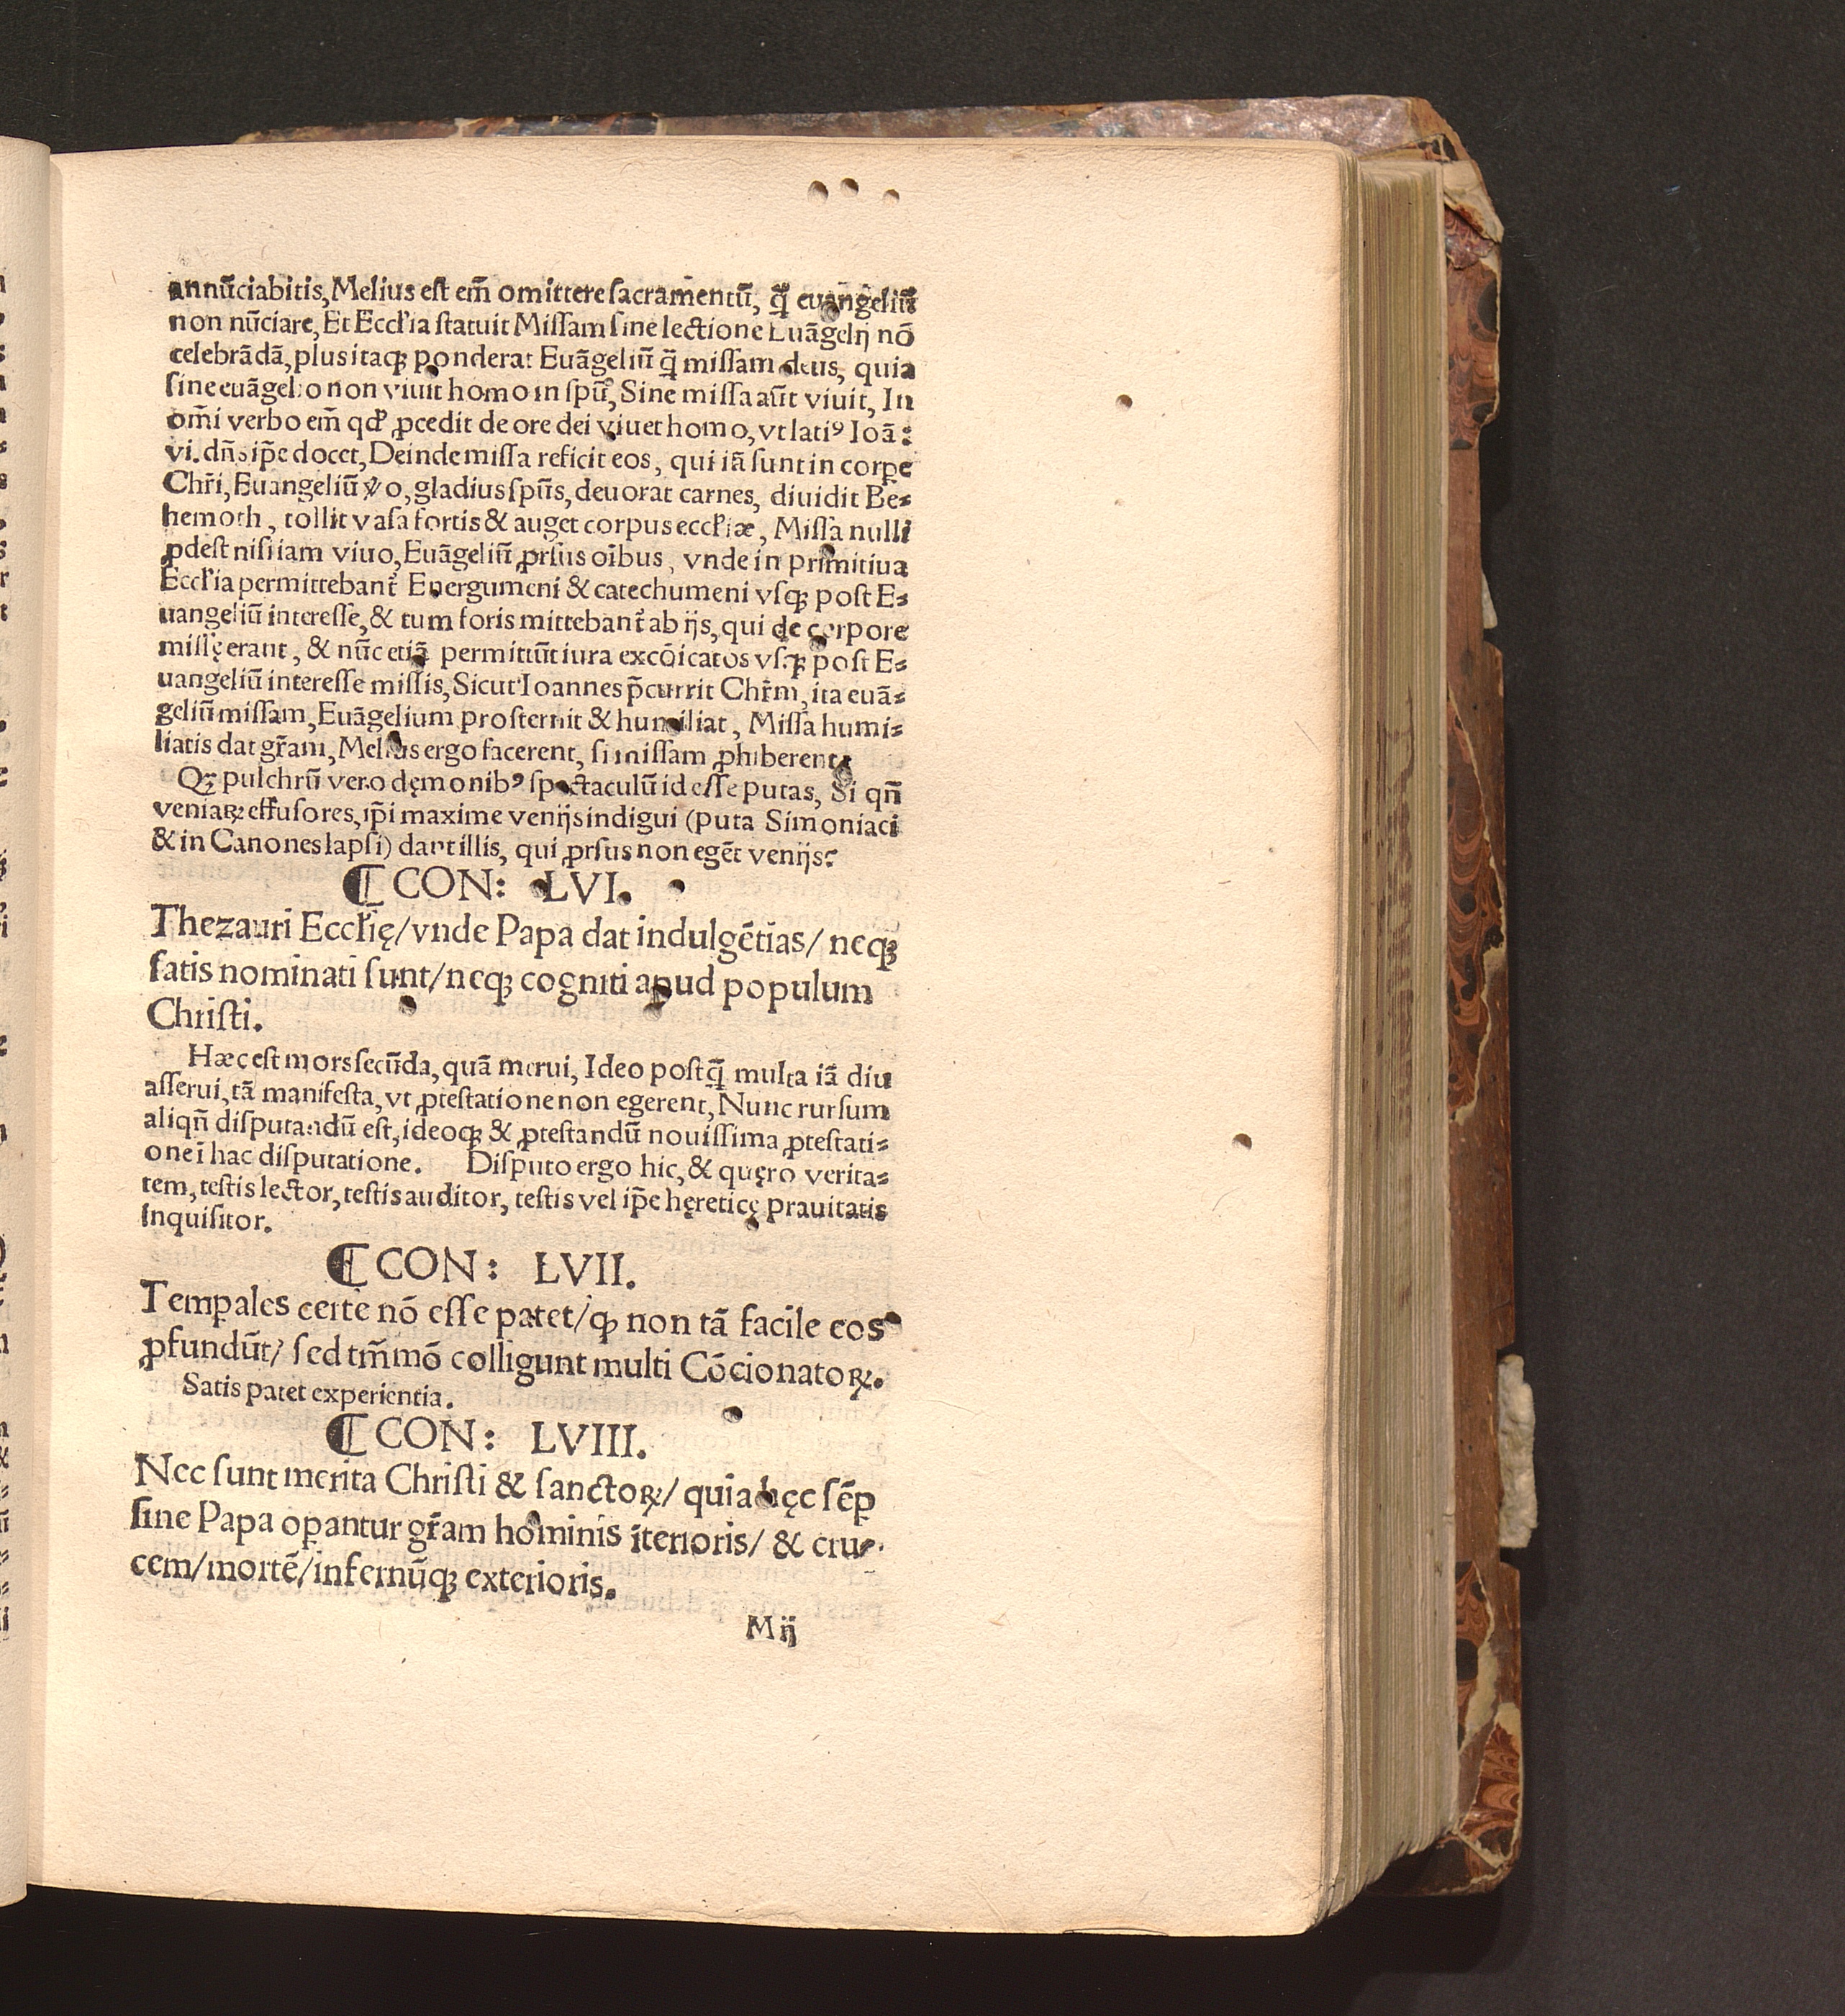 annūciabitis, Melius est em̄ omittere sacramentū, q̄ȝ euangeliū
non nūciare, Et Eccƚia statuit Missam sine lectione Euāgelij nō
celebrādā, plus itaqꝫ ponderat Euāgeliū q̄ȝ missam deus, quia
sine euāgelio non viuit homo in spū, Sine missa aūt viuit, In
om̄i verbo em̄ qď ꝓcedit de ore dei viuet homo, vt latiꝰ Ioā:
vi. dn̄s ip̄e docet, Deinde missa reficit eos, qui iā sunt in corꝑe
Chr̄i, Euangeliū ꝟo, gladius spūs, deuorat carnes, diuidit Be⸗
hemoth, tollit vasa fortis & auget corpus eccƚiæ, Missa nulli
ꝓdest nisi iam viuo, Euāgeliū ꝓrsus oībus, vnde in primitiua
Eccƚia permittebant᷑ Energumeni & catechumeni vsqꝫ post E⸗
uangeliū interesse, & tum foris mittebant᷑ ab ijs, qui de corpore
missę erant, & nūc etiā permittūt iura excōicatos vsqꝫ post E⸗
uangeliū interesse missis, Sicut Ioannes p̄currit Chr̄m, ita euā⸗
geliū missam, Euāgelium prosternit & humiliat, Missa humi⸗
liatis dat gr̄am, Melius ergo facerent, si missam ꝓhiberent.
Qꝫ pulchrū vero dęmonibꝰ spectaculū id esse putas, Si qn̄
veniaꝝ effusores, ip̄i maxime venijs indigui (puta Simoniaci
& in Canones lapsi) dant illis, qui ꝓrsus non egēt venijs?
⸿ CON: LVI.
Thezauri Eccƚię/ vnde Papa dat indulgētias/ neqꝫ
satis nominati sunt/ neqꝫ cogniti apud populum
Christi.
Hæc est mors secūda, quā merui, Ideo postq̄ȝ multa iā diu
asserui, tā manifesta, vt ꝓtestatione non egerent, Nunc rursum
aliqn̄ disputandū est, ideoqꝫ & ꝓtestandū nouissima ꝓtestati⸗
one ī hac disputatione. Disputo ergo hic, & quęro verita⸗
tem, testis lector, testis auditor, testis vel ip̄e hęreticę prauitatis
inquisitor.
⸿ CON: LVII.
Temꝑales certe nō esse patet/ ꝙ non tā facile eos
ꝓfundūt/ sed tm̄mō colligunt multi Cōcionatoꝝ.
Satis patet experientia.
⸿ CON: LVIII.
Nec sunt merita Christi & sanctoꝝ/ quia hęc sēꝑ
sine Papa oꝑantur gr̄am hominis īterioris/ & cru⸗
cem/ mortē/ infernūqꝫ exterioris.
M ij